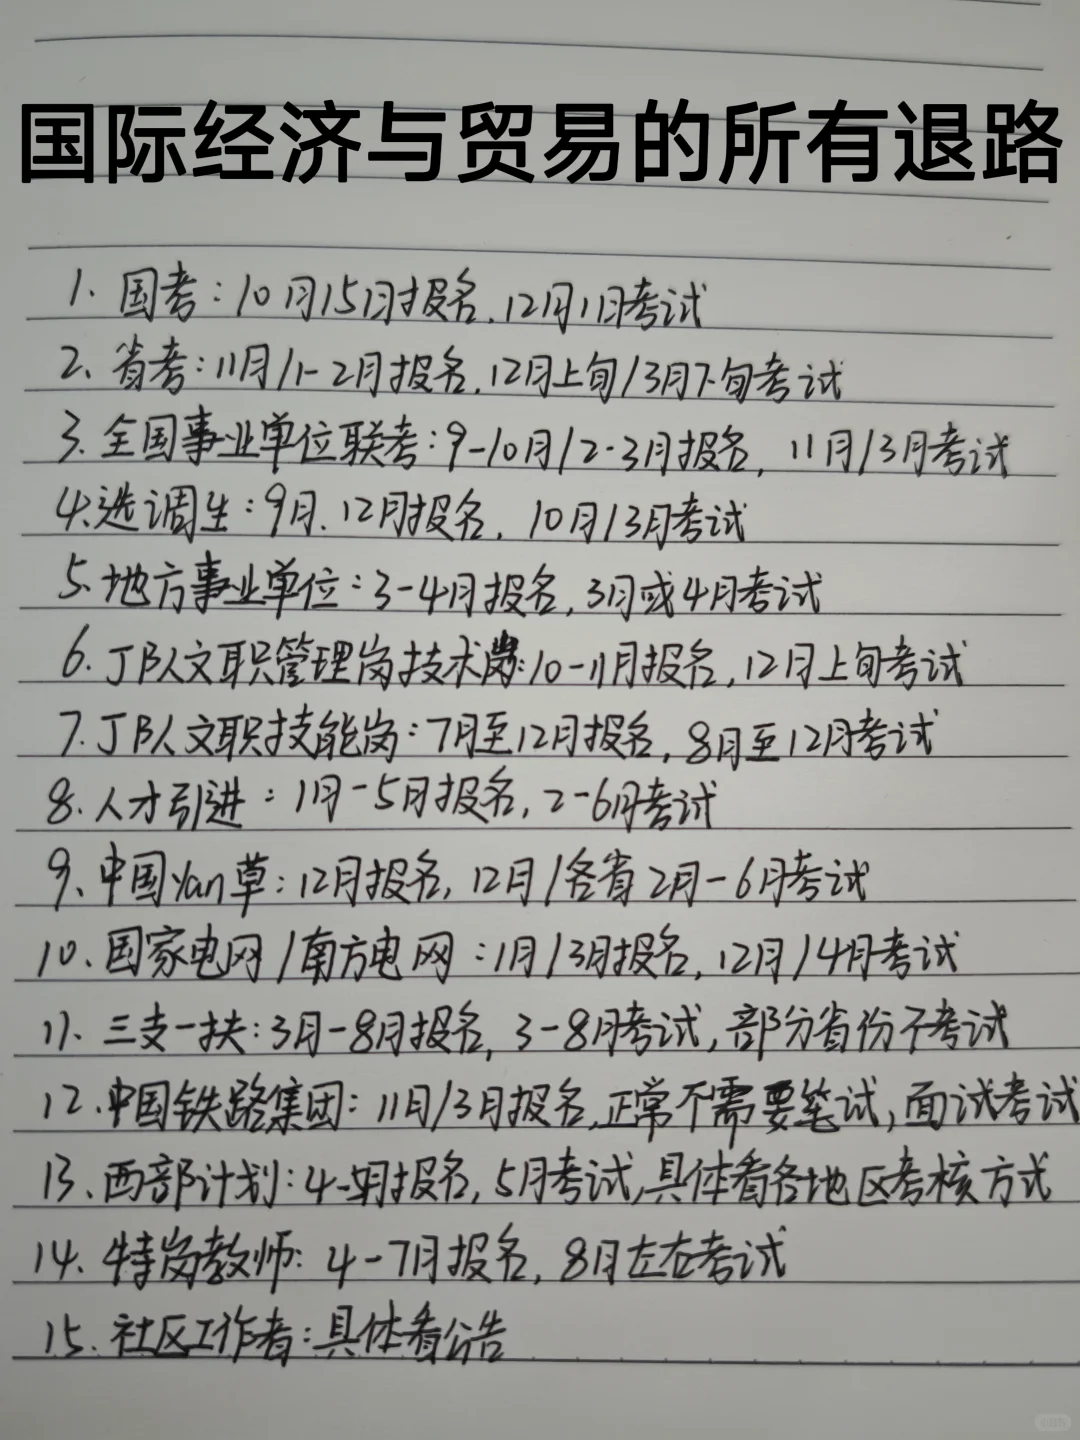 国际经济与贸易的所有退路
1. 国考：10月15日报名，12月1日考试
2、省考：11月/1-2月报名，12月上旬/3月下旬考试
3. 全国事业单位联考：9-10月/2·3月报名，11月/3月考试
4.选调生：9月、12月报名，10月/3月考试
5. 地方事业单位：3-4月报名，3月或4月考试
6. JB队文职管理岗技术岗：10-11月报名，12月上旬考试
7. JB队文职技能岗：7月至12月报名，8月至12月考试
8. 人才引进：1月-5月报名，2-6月考试
9、中国yan草：12月报名，12月/各省2月-6月考试
10、国家电网/南方电网：1月/3月报名，12月/4月考试
11、三支一扶：3月-8月报名，3-8月考试，部分省份不考试
12.中国铁路集团：11月/3月报名，正常不需要笔试，面试考试
13、西部计划：4-5月报名，5月考试，具体看各地区考核方式
14、特岗教师：4-7月报名，8月左右考试
15. 社区工作者：具体看公告
小红书